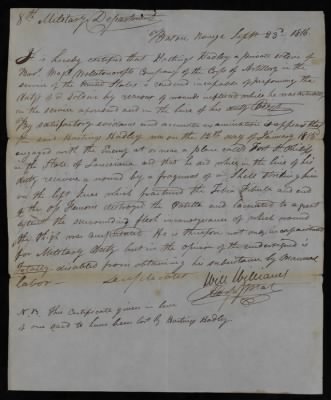 8th Military Department
Baton Rouge Sept 23d 1816
It is hereby certified that Hasting Hadley a private soldier of
Brvt. Majr. Company of the Corps of Artillery in the
service of the United States is rendered incapable of performing the
duty of a soldier by reason of wounds inflicted while he was actually
in the service aforesaid and in the line of his duty
By satisfactory evidence and accurate examination it appears that
the said Hasting Hadley was on the 12th day of January 1815
engaged with the Enemy at or near a place called Fort St Philip
in the State of Louisiana and that he did while in the line of his
duty receive a wound by a fragment of a Shell striking him
on the left knee which fractured the Tibia Fibula and end
of the Os Femoris destroyed the Patella and lacerated to a great
extent the surrounding flesh in consequence of which wound
the thigh was amputated. He is therefore not only incapacitated
for Military duty but in the opinion of the undersigned is
totally disabled from obtaining his subsistence by manual
labor
Will Williams
N.B. This Certificate given in lieu
of one said to have been lost by Hasting Hadley.